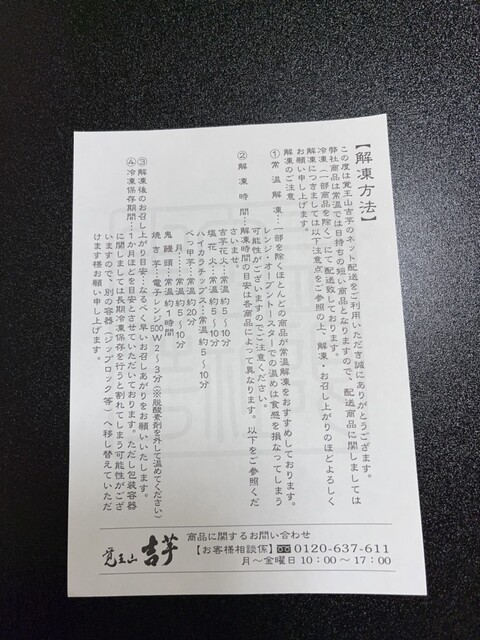 【解凍方法】
この度は覚王山吉芋のネット配送をご利用いただき誠にありがとうございます。
弊社商品は常温では日持ちの短い商品となりますので、配送商品に関しましては
冷凍（一部商品を除く）にて配送致しております。
解凍につきましては以下注意点をご参照の上、解凍・お召し上がりのほどよろしく
お願い申し上げます。
解凍のご注意
①常温解凍…一部を除くほとんどの商品が常温解凍をおすすめしております。
レンジ・オーブントースターでの温めは食感を損なってしまう
可能性がございますのでご注意ください。
②解凍時間…解凍時間の目安は各商品によって異なります。以下をご参照くだ
さいませ。
吉芋花火…常温約5～10分
塩花火…常温約5～10分
ハイカラチップス…常温約5～10分
べっ甲芋…常温約20分
月…常温約5～10分
鬼饅頭…常温約1時間
焼吉芋…電子レンジ500W2～3分(※脱酸素剤を外して温めてください)
③解凍後のお召し上がり目安…なるべく早いお召しあがりをお願いいたします。
④冷凍保存期間…1か月ほどを目安とさせていただいております。ただし包装容器
に関しましては長期冷凍保存を行うと割れてしまう可能性がござ
いますので、別の容器（ジップロック等）へ移し替えていただ
けます様お願い申し上げます。
覚王山 吉芋
商品に関するお問い合わせ
【お客様相談係】0120-637-611
月～金曜日10:00～17:00